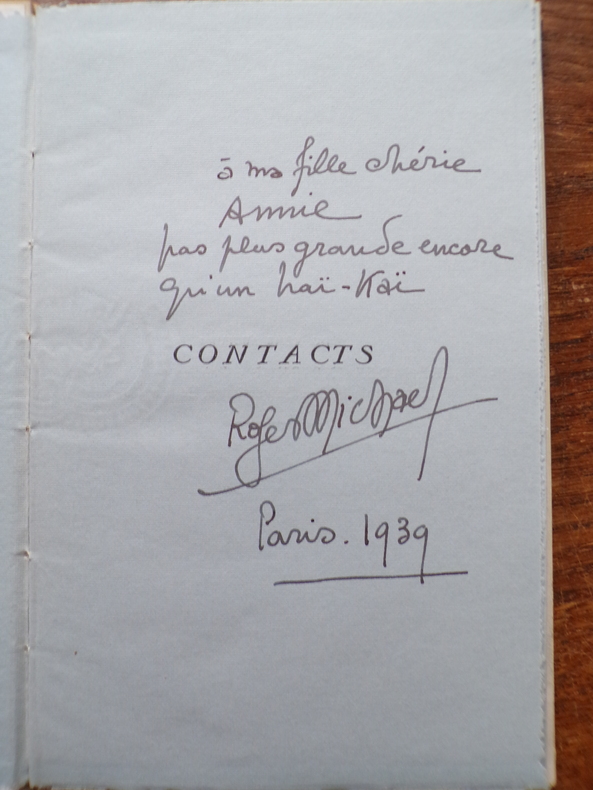 à ma fille chérie
Annie
pas plus grande encore
qu'un haï-Kaï
CONTACTS
Roger Michael
Paris. 1939